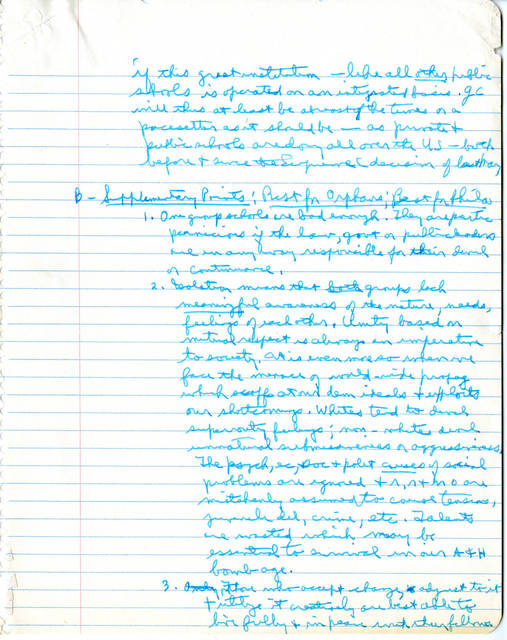 if this great institution — like all other public
schools is operated on an integrated basis. GC
will thus at least be abreast of the times or a
pacesetter as it should be — as private &
public schools are doing all over the US — both
before & since the Supreme C decision of last May
B - Supplementary Points: Best for Orphans; Best for Phila
1. One group schools are bad enough. They are partic
pernicious if the law, govt or public leaders
are in any way responsible for their devel
or continuance.
2. Isolation means that both groups lack
meaningful awareness of the nature, needs,
feelings of each other. Unity based on
mutual respect is always an imperative
to society. It is even more so when we
face the menace of world wide propag
which scoffs at our dem ideals & exploits
our shortcomings. Whites tend to devel
superiority feelings; non-whites devel
unnatural submissiveness or aggressiveness.
The psych, ec, soc & polit causes of social
problems are ignored & r, r & n o are
mistakenly assumed to cause tensions,
juvenile del, crime, etc. Talents
are wasted which may be
essential to survival in our A & H
bomb age.
3. Only those who accept change, adjust to it
& utilize it creatively are best able to
live fully & in peace with their fellows